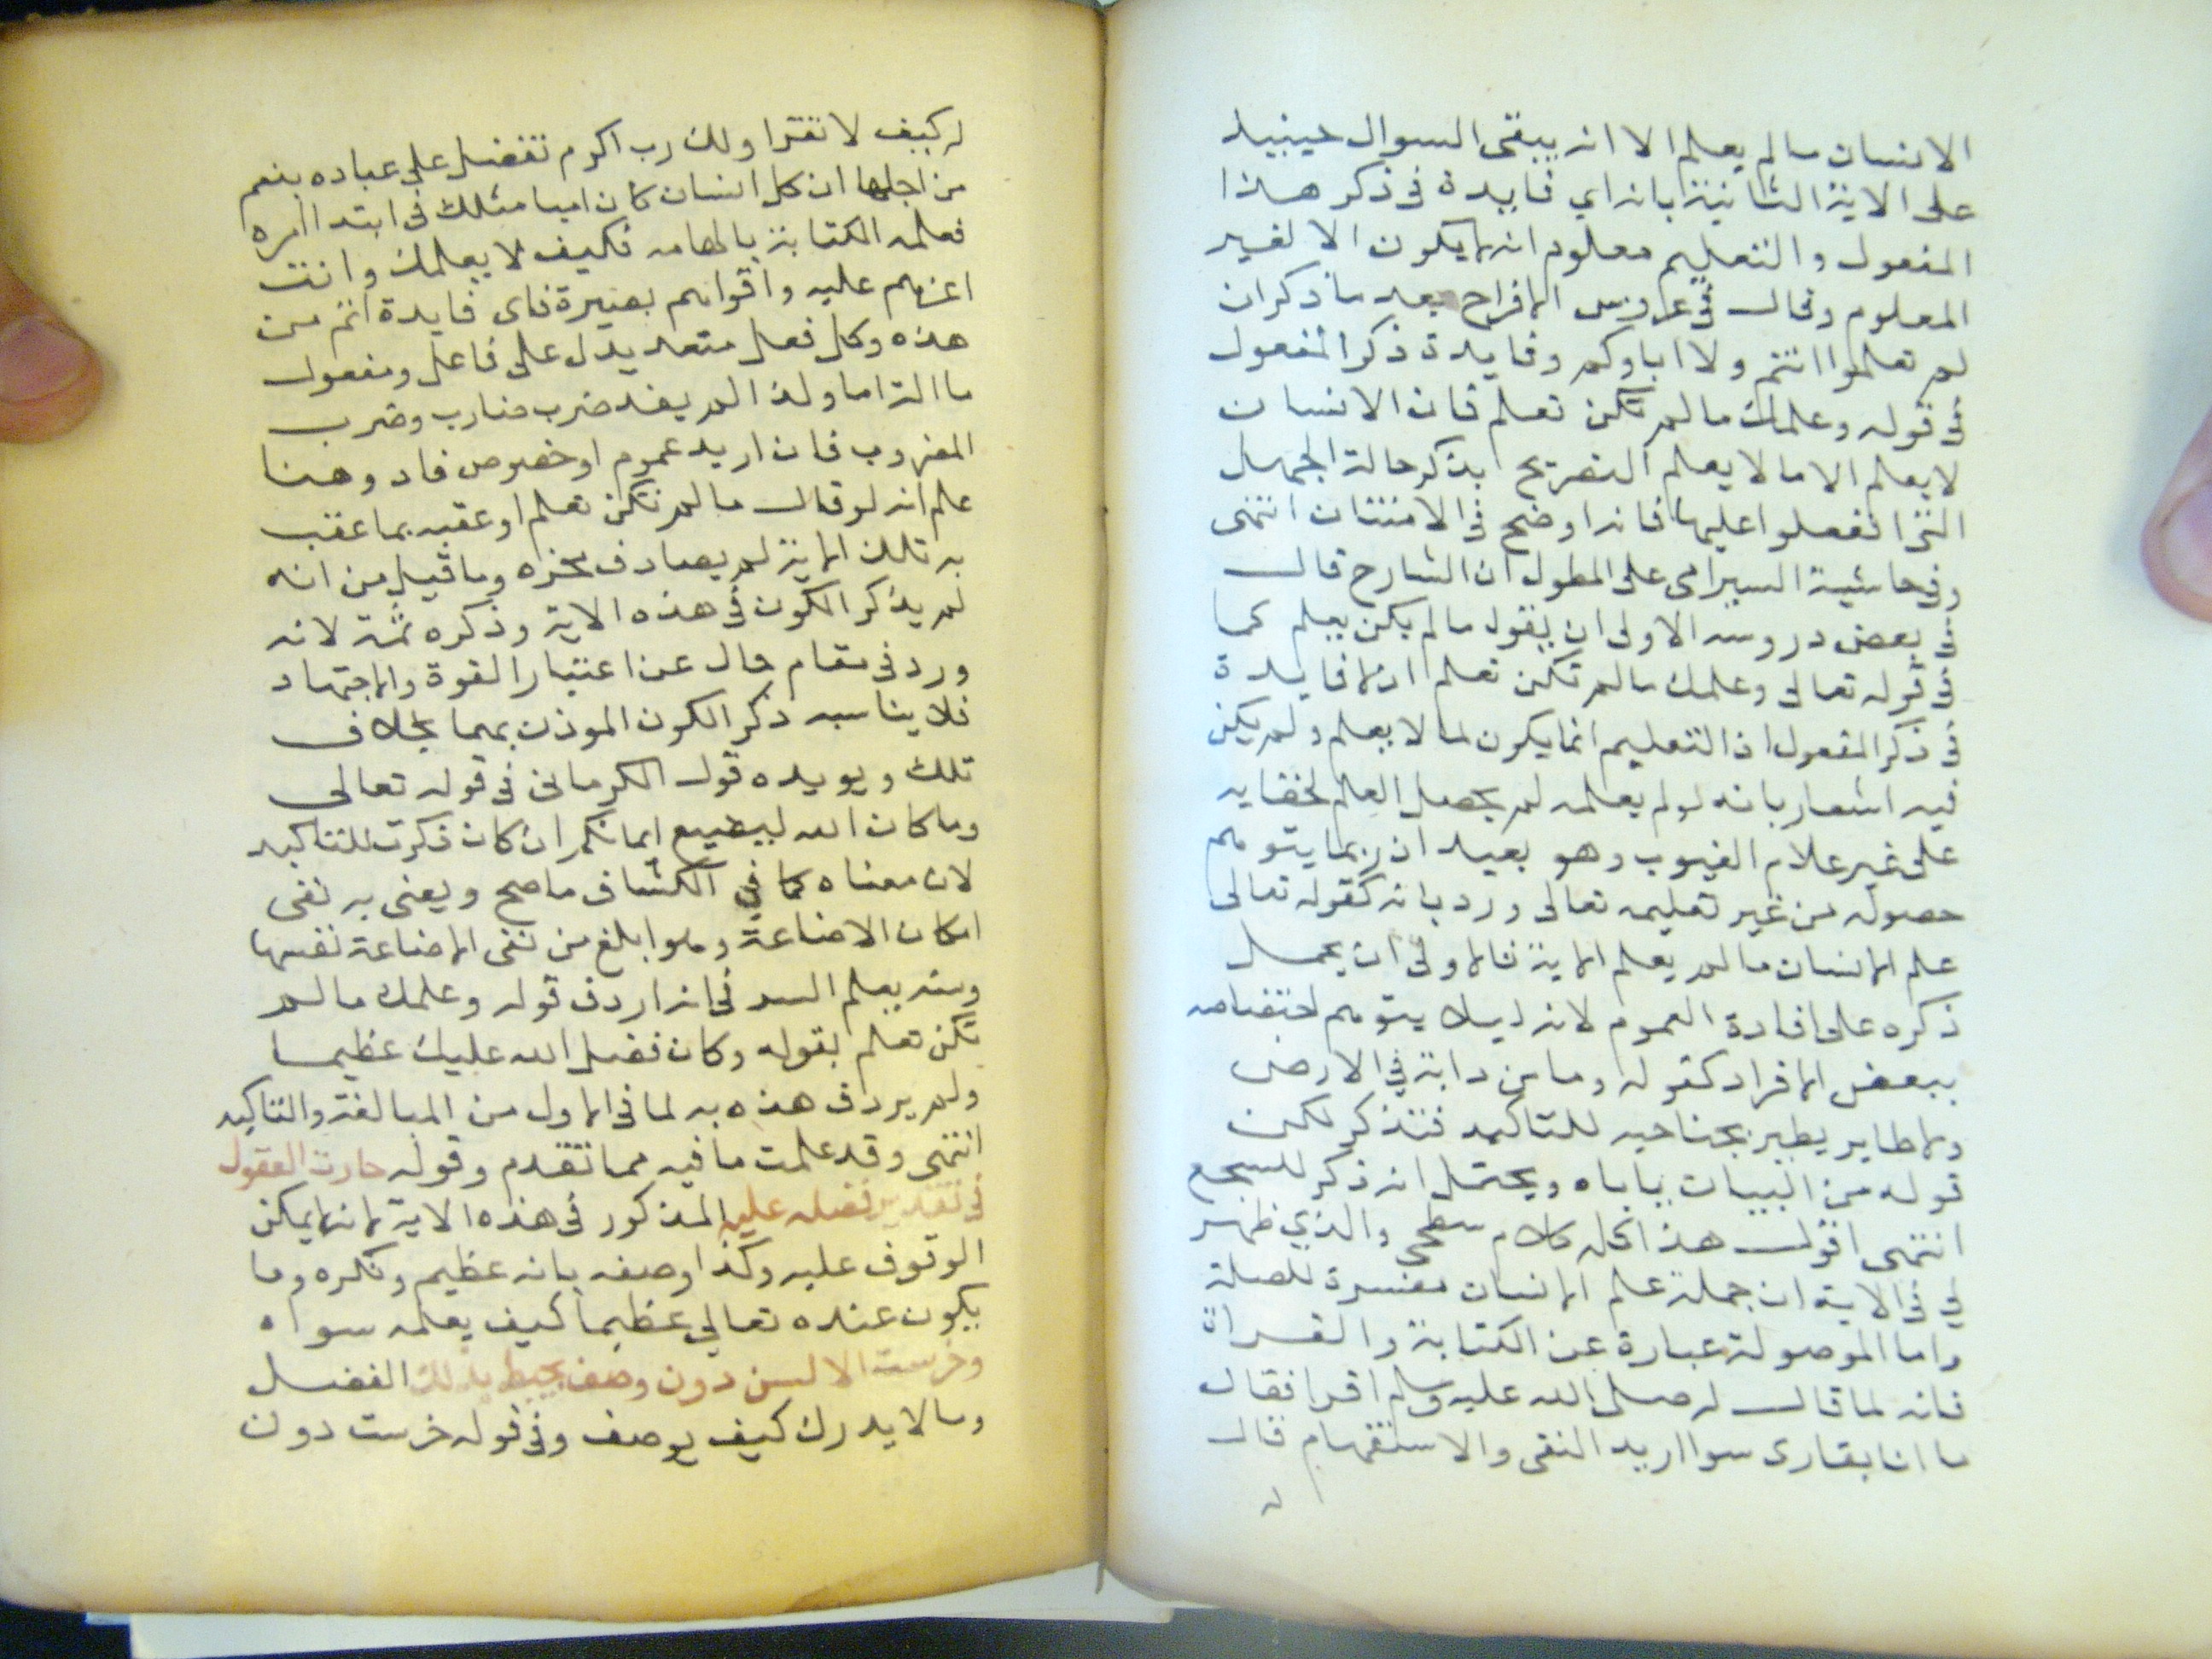 الانسان مالم يعلم الا انه يبقى السوال حينيد
على الاية الثانية بانه اي فايدة في ذكر هذا
المفعول والتعليم معلوم انه لا يكون الا لغير
المعلوم وقال في عروس الافراح بعد ما ذكر ان
لم تعلموا انتم ولا اباوكم وفايدة ذكر المفعول
في قوله وعلمك ما لم تكن تعلم فان الانسان
لا يعلم الا ما لا يعلم التصريح بذكر حالة الجهل
التي انفصلوا عليها فانه اوضح في الامتنان انتهى
وفي حاشية السيرامي على المطول ان الشارح قال
في بعض دروسه الاولى ان يقول مالم يكن يعلم كما
في قوله تعالى وعلمك مالم تكن تعلم اذ لا فايدة
في ذكر المفعول اذ التعليم انما يكون لما لا يعلم ولم يكن
فيه اشعار بانه لو لم يعلمه لم يحصل العلم لخفايه
على غير علام الغيوب وهو بعيد ان ربما يتوهم
حصوله من غير تعليمه تعالى ورد بانه كقوله تعالى
علم الانسان ما لم يعلم الاية فالاولى ان يحمل
ذكره على افادة العموم لانه ليلا يتوهم اختصاصه
ببعض الافراد كقوله وما من دابة في الارض
ولا طاير يطير بجناحيه للتاكيد فتذكر لكن
قوله من البيان ياباه ويحتمل انه ذكر للسجع
انتهى اقول هذا كله كلام سطحي والذي ظهر
لي في الاية ان جملة علم الانسان مفسرة للصلة
واما الموصولة عبارة عن الكتابة والقراة
فانه لما قال له صلى الله عليه وسلم اقرا فقال
ما انا بقاري سوا اريد النفي والاستفهام قال
له
له كيف لا تقرا ولك رب اكرم تفضل على عباده بنعم
من اجلها ان كل انسان كان اميا مثلك في ابتدا امره
فعلمه الكتابة بالهامه فكيف لا يعلمك وانت
اعزهم عليه واقواهم بصيرة فاى فايدة اتم من
هذه وكل فعل متعد يدل على فاعل ومفعول
ما التزاما ولذا لم يفد ضرب ضارب وضرب
المضروب فان اريد عموم او خصوص فاد وهنا
علم انه لو قال ما لم تكن تعلم او عقبه بما عقب
به تلك الاية لم يصادف محزه وما قيل من انه
لم يذكر الكون في هذه الاية وذكره ثمة لانه
ورد في مقام خال عن اعتبار القوة والاجتهاد
فلا يناسبه ذكر الكون الموذن بهما بخلاف
تلك ويويده قول الكرماني في قوله تعالى
وما كان الله ليضيع ايمانكم ان كان ذكرت للتاكيد
لان معناه كما في الكشاف ما صح ويعني به نفي
امكان الاضاعة وهو ابلغ من نفي الاضاعة نفسها
ومنه يعلم السر في انه اردف قوله وعلمك ما لم
تكن تعلم بقوله وكان فضل الله عليك عظيما
ولم يردف هذه به لما في الاول من المبالغة والتاكيد
انتهى وقد علمت ما فيه مما تقدم وقوله حارت العقول
في تقدير فضله عليه المذكور في هذه الاية لانه لا يمكن
الوقوف عليه وكذا وصفه بانه عظيم ونكره وما
يكون عنده تعالى عظيما كيف يعلمه سواه
وخرست الالسن دون وصف يحيط بذلك الفضل
وما لا يدرك كيف يوصف وفي قوله خرست دون